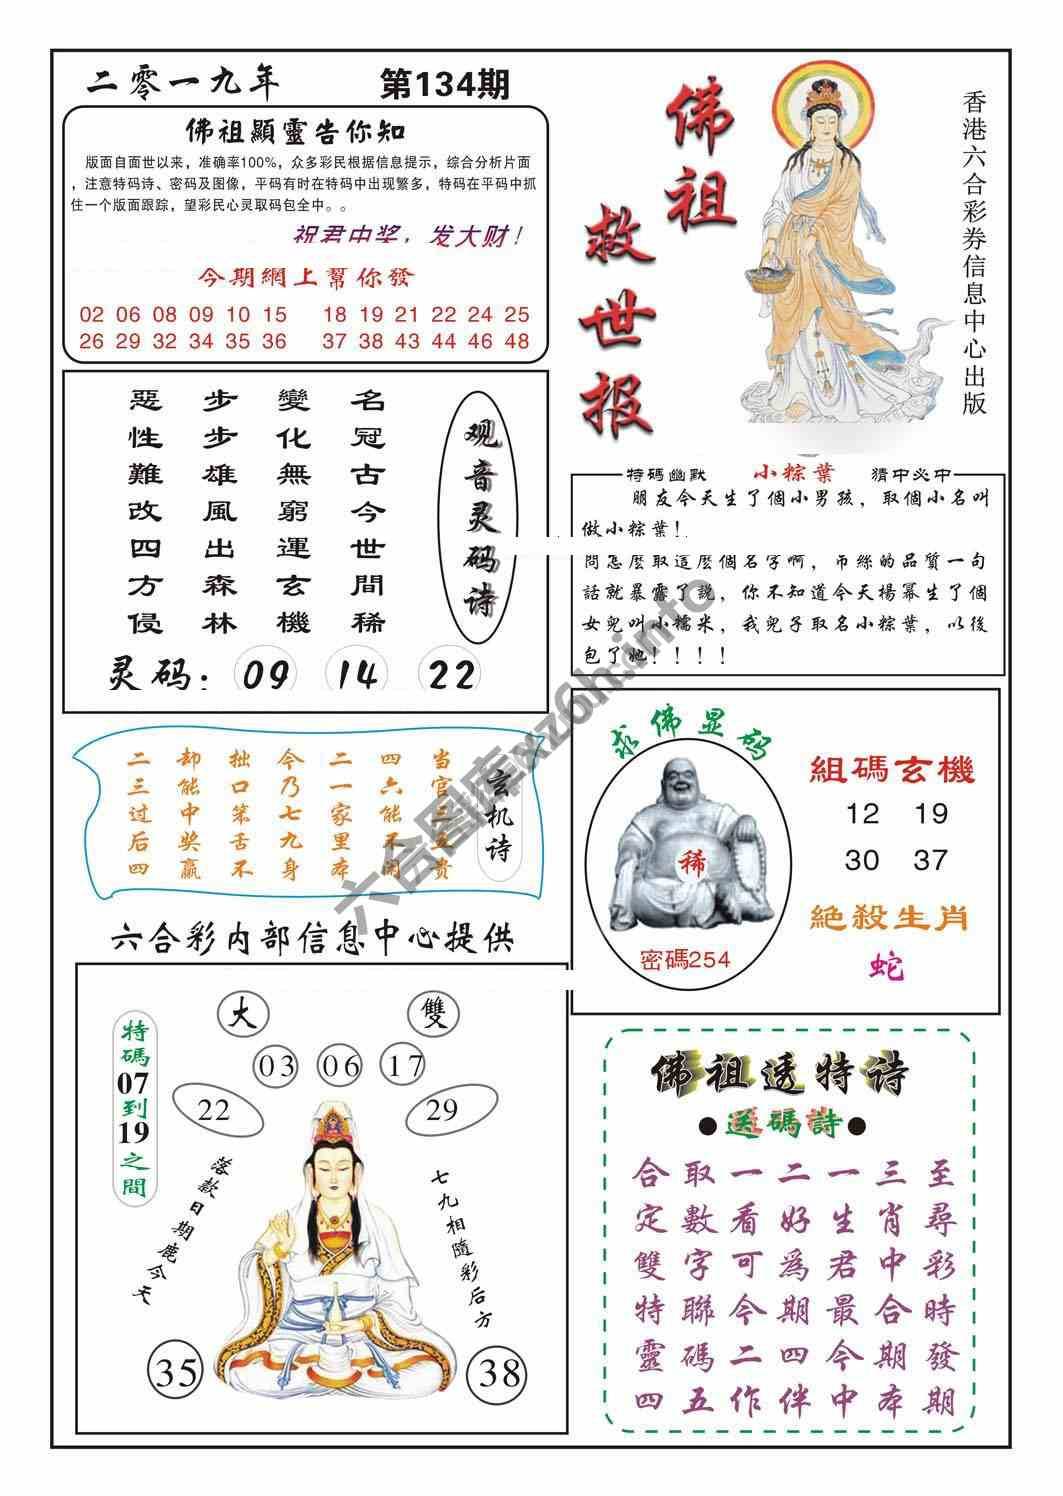 二零一九年 第134期
佛祖顯靈告你知
版面自面世以来，准确率100%，众多彩民根据信息提示，综合分析片面
，注意特码诗、密码及图像，平码有时在特码中出现繁多，特码在平码中抓
住一个版面跟踪，望彩民心灵取码包全中。。
祝君中奖，发大财！
今期網上幫你發
02 06 08 09 10 15 18 19 21 22 24 25
26 29 32 34 35 36 37 38 43 44 46 48
佛祖
救世报
香港六合彩券信息中心出版
名冠古今世間稀
變化無窮運玄機
步步雄風出森林
惡性難改四方侵
观音灵码诗
灵码：09 14 22
特碼幽默 小粽葉 猜中必中
朋友今天生了個小男孩，取個小名叫
做小粽葉！
問怎麼取這麼個名字啊，币絲的品質一句
話就暴露了說，你不知道今天楊冪生了個
女兒叫小糯米，我兒子取名小粽葉，以後
包了她！！！！
玄机诗
当官三五贵
四六能不闹
二一家里本
今乃七九身
拙口笨舌不
却能中奖赢
二三过后四
求佛显码
稀
密碼254
組碼玄機
12 19
30 37
絕殺生肖
蛇
六合彩内部信息中心提供
大 雙
03 06 17
22 29
特碼07到19之間
落款日期鹿今天
七九相隨彩后方
35 38
佛祖透特诗
●送碼詩●
至尋彩時發期
三肖中合期本
一生君最今中
二好為期四伴
一看可今二作
取數字聯碼五
合定雙特靈四
六合图库xz6h.info